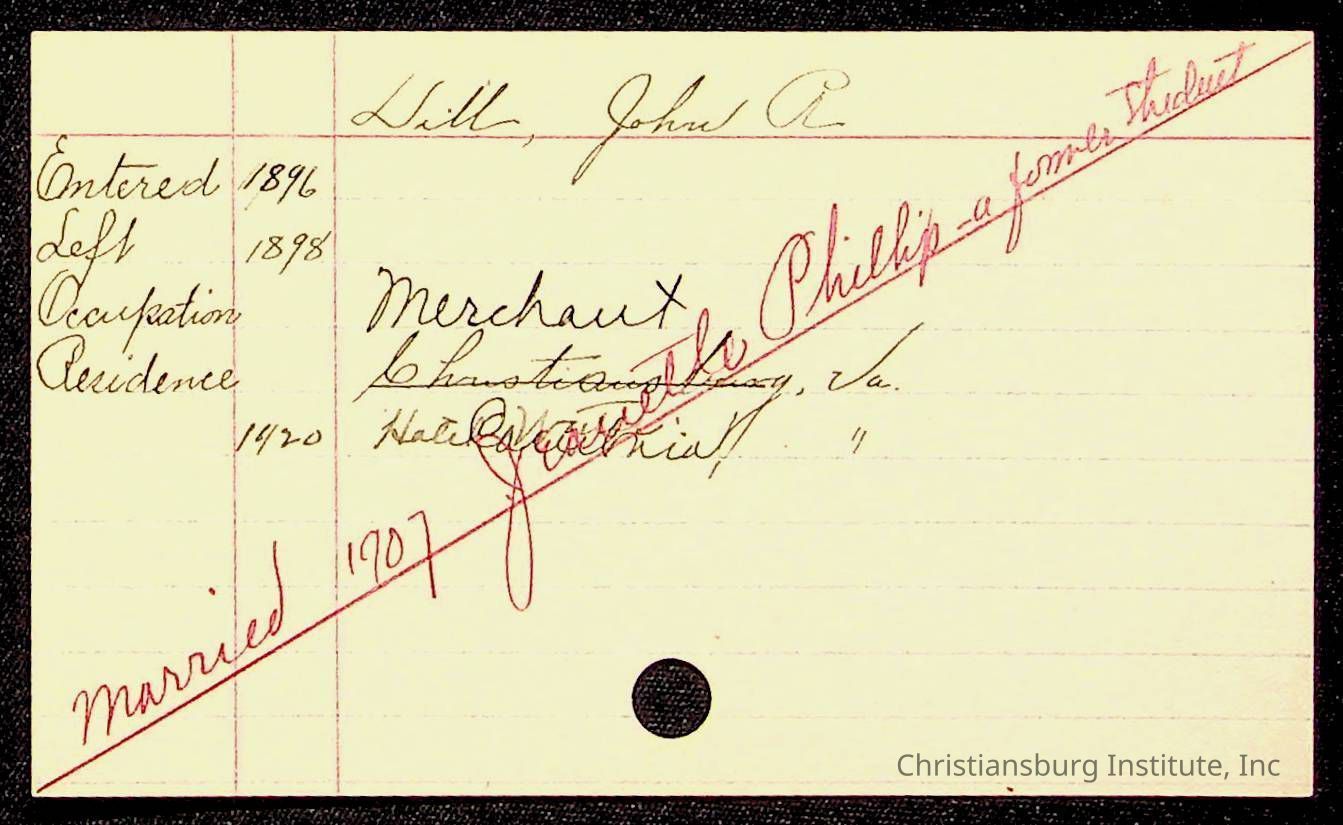 Hill, John R
Entered 1896
Left 1898
Occupation Merchant
Residence Christiansburg, Va.
1920 "
Married 1907 Phillip - a former Student
Christiansburg Institute, Inc